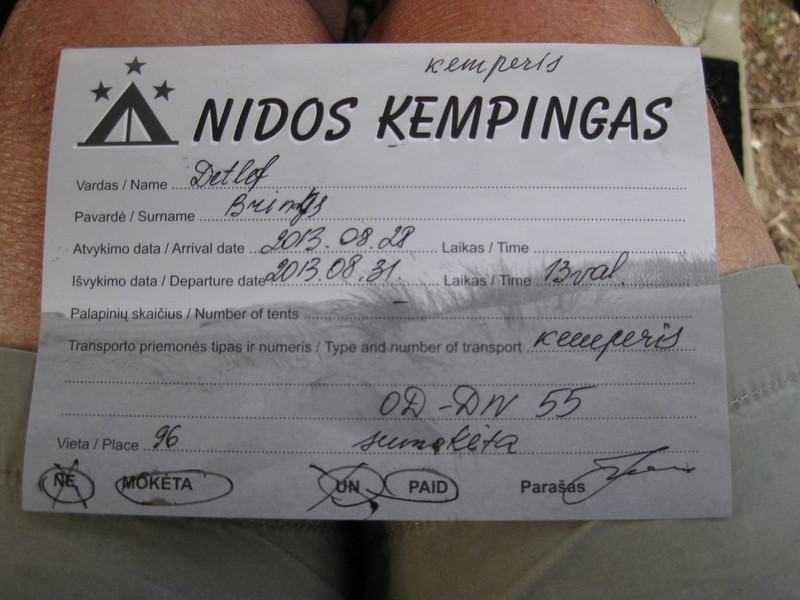 kemperis
NIDOS KEMPINGAS
Vardas / Name Detlef
Pavardė / Surname
Atvykimo data / Arrival date 2013.08.28 Laikas / Time
Išvykimo data / Departure date 2013.08.31. Laikas / Time 13 val.
Palapinių skaičius / Number of tents –
Transporto priemonės tipas ir numeris / Type and number of transport kemperis
OD-DN 55
Vieta / Place 96 sumokėta
NE MOKĖTA UN PAID Parašas